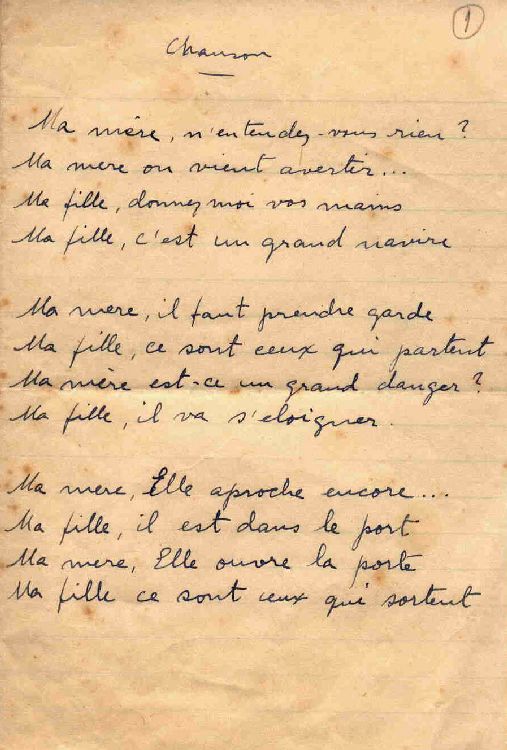 1
Chanson
Ma mère, n'entendez-vous rien ?
Ma mere on vient avertir...
Ma fille, donnez moi vos mains
Ma fille, c'est un grand navire
Ma mere, il faut prendre garde
Ma fille, ce sont ceux qui partent
Ma mère est-ce un grand danger ?
Ma fille, il va s'eloigner.
Ma mere, Elle aproche encore....
Ma fille, il est dans le port
Ma mere, Elle ouvre la porte
Ma fille ce sont ceux qui sortent